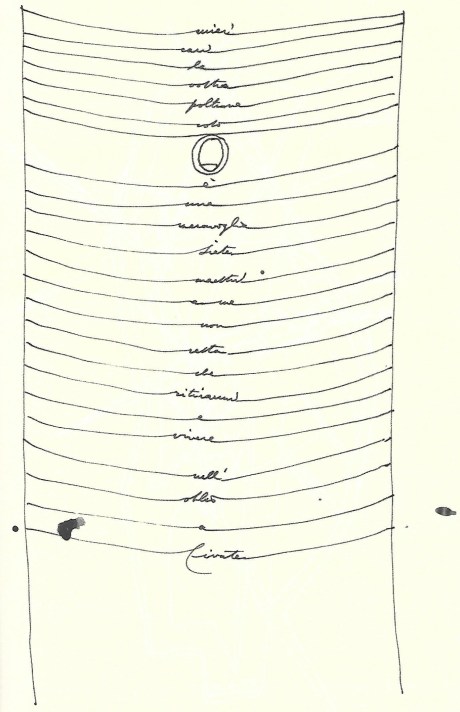 miei
cari
la
vostra
poltrona
solo
è
una
meraviglia
siete
maestri
a me
non
resta
che
ritirarmi
e
vivere
nell'
oblio
a
Civate